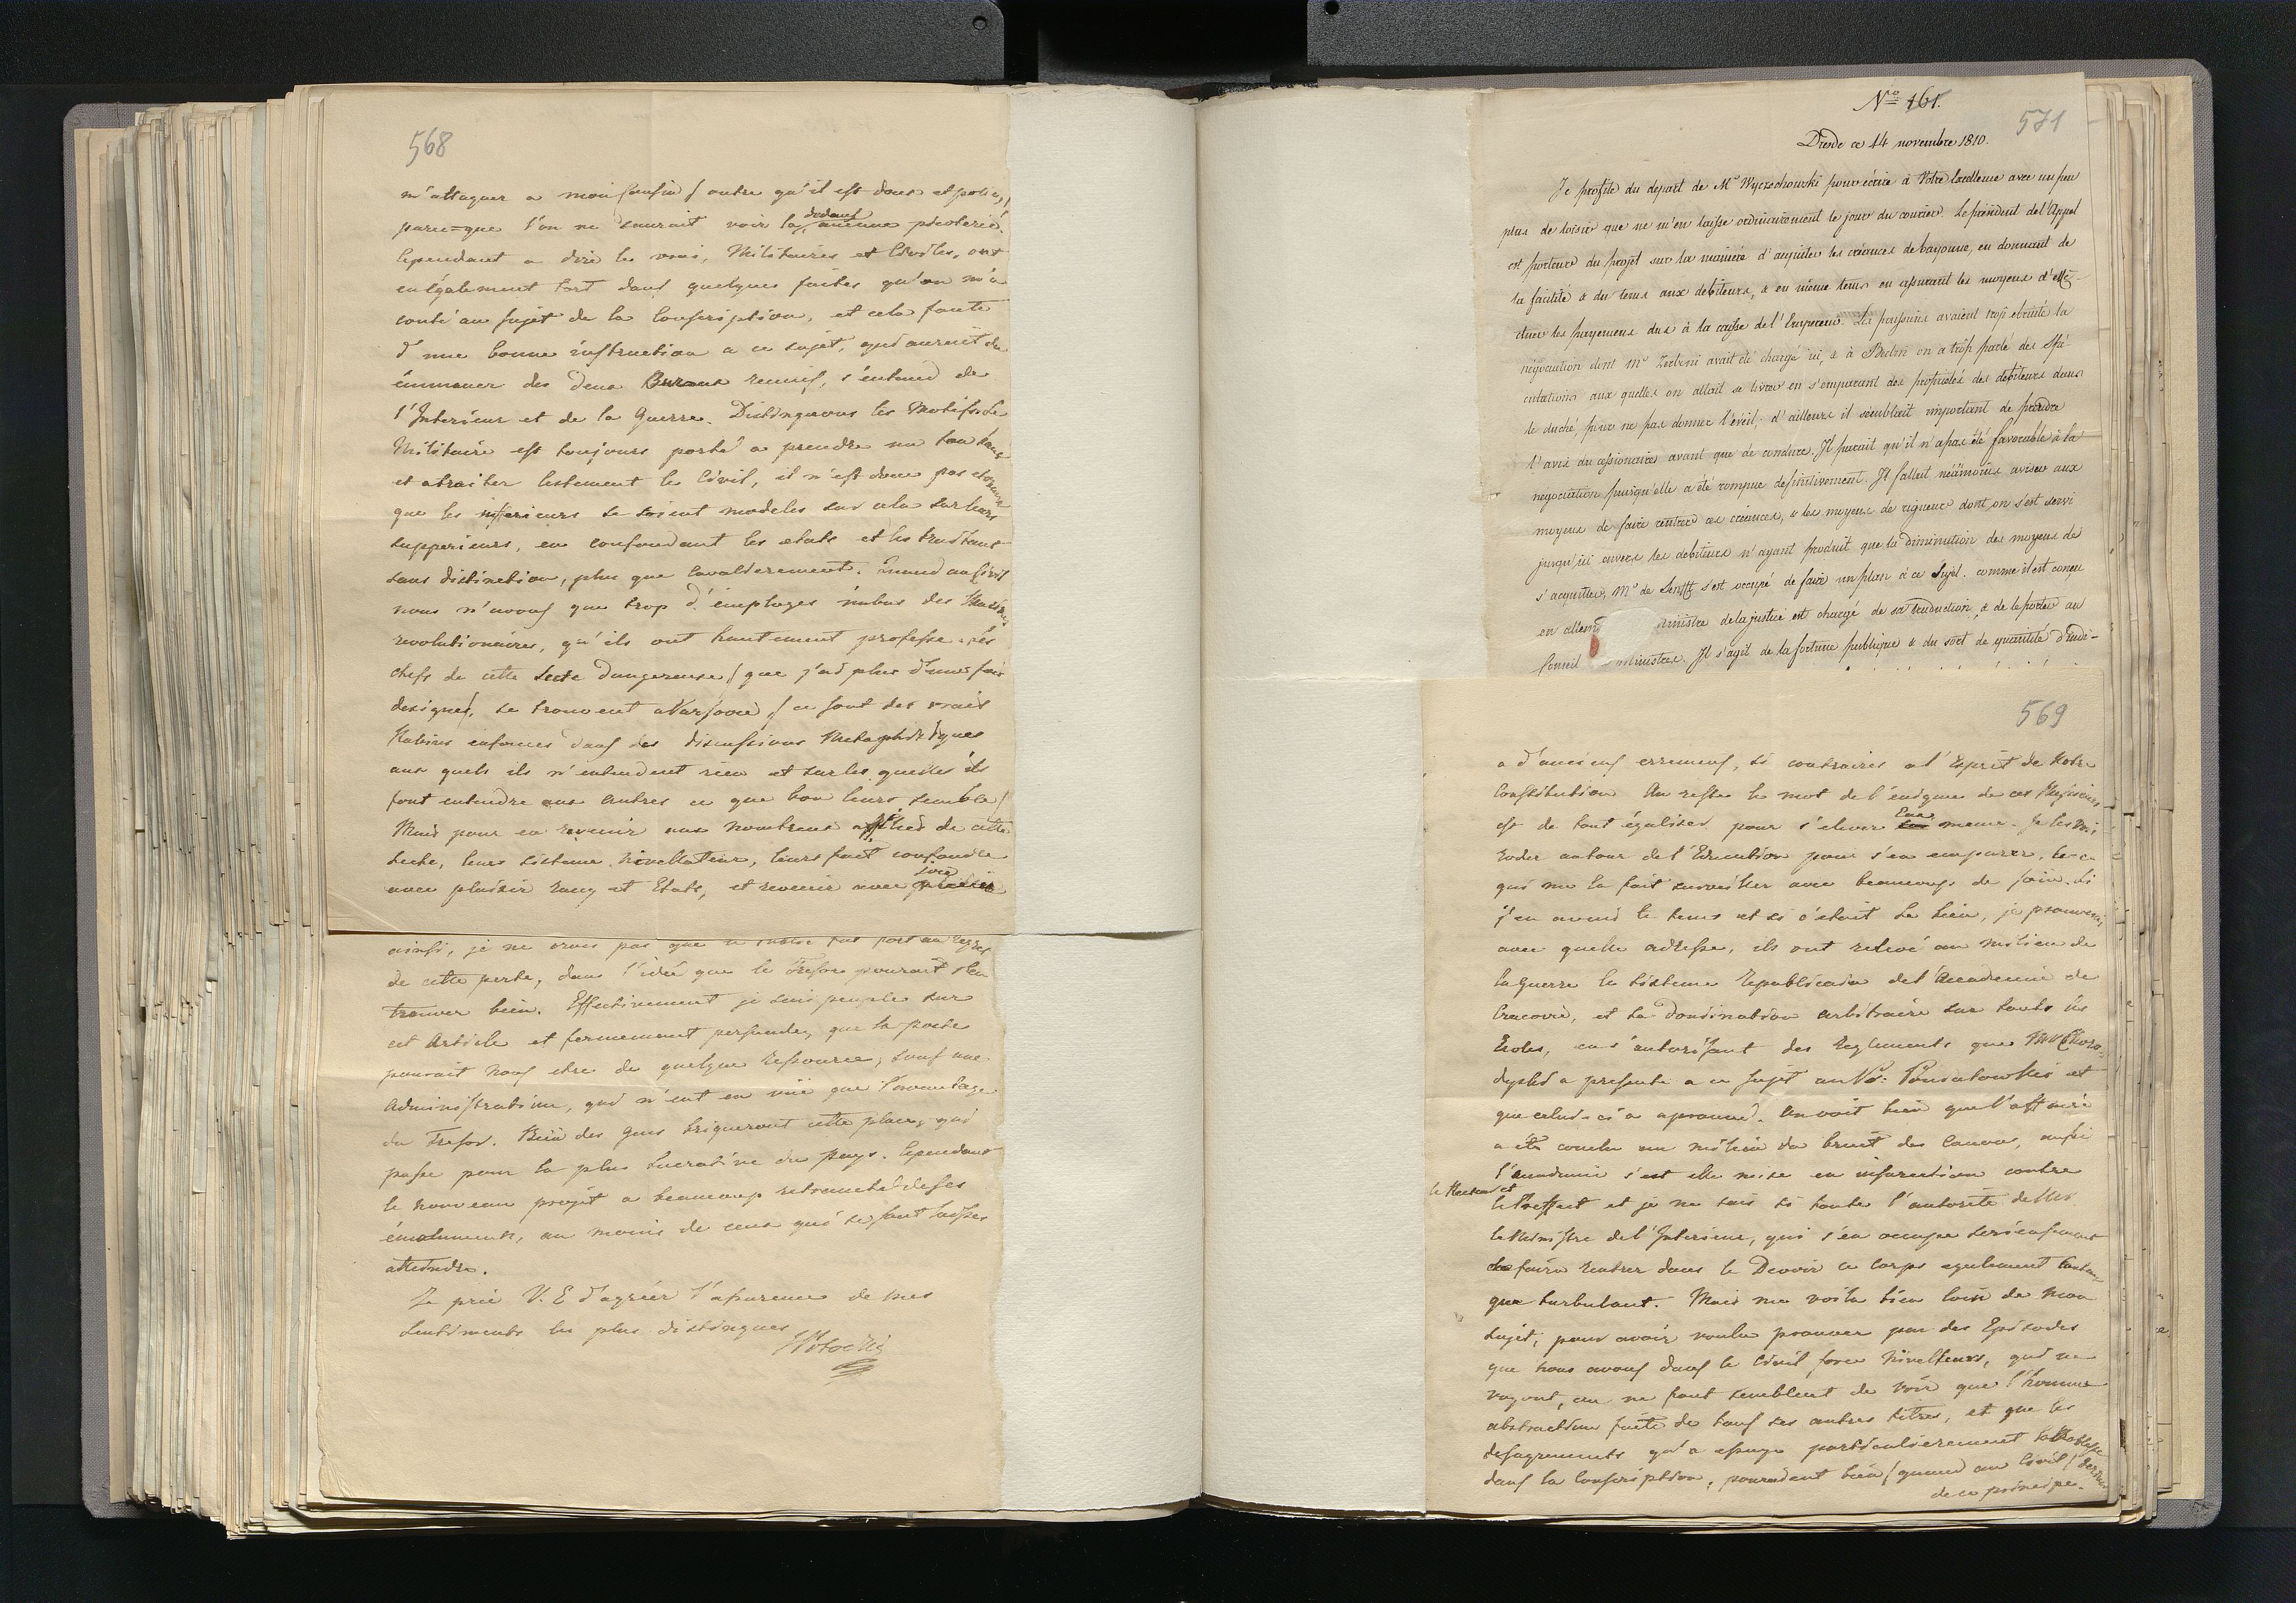 568
m'attaquer a mon cousin / outre qu'il est doux et polie, /
parce=que l'on ne saurait voir la dedans aucune picoterie.
Cependant a dire le vrai, Militaires et Civiles, ont
eu également tort dans quelques faites qu'on m'a
conté au sujet de la Conscription, et cela faute
d'une bonne instruction a ce sujet, qui auroit du
émmaner des deux Bureaux reunis, s'entend de
l'Interieur et de la Guerre. Distinguons les Motifs. Le
Militaire est toujours porté a prendre un ton haut
et a traiter lestement le Civil, il n'est donc pas etonnant
que les inferieurs se soient modeles sur cela sur leurs
supperieurs, en confondant les etats et les traitant
sans distinction, plus que cavalierement. Quand au Civil
nous n'avons que trop d'employes imbus des Maximes
revolutionaires, qu'ils ont hautement professe. Les
chefs de cette Secte dangereuse / que j'ai plus d'une fois
designes, se trouvent a Varsovie / ce sont des vrais
Rabins enfonces dans des discussions Metaphisiques
aux quels ils n'entendent rien et sur les queles ils
font entendre aux autres ce que bon leurs semble /
Mais pour en revenir aux nombreux affilies de cette
Secte, leurs sisteme Nivellateur, leurs fait confondre
avec plaisir rang et Etats, et revenir avec joie
ainsi, je ne crois pas que
de cette perte, dans l'idée que le Tresor pourait s'en
trouver bien. Effectivement je suis peuple sur
cet Article et fermement persuade, que la poste
pourait nous etre de quelque ressource, sous une
Administration, qui n'eut en vüe que l'avantage
du Tresor. Bien des gens briqueront cette place, qui
passe pour la plus lucrative du pays. Cependant
le nouveau projet a beaucoup retranché de ses
émoluments, au moins de ceux qui se sont laisses
atteindre.
Je prie V. E d'agréer l'assurance de mes
sentiments les plus distingues
Potocki
No 161.
571
Dresde ce 14 novembre 1810.
Je profite du depart de Mr Wyczechowski pour écrire à Votre Excellence avec un peu
plus de loisir que ne m'en laisse ordinairement le jour du courier. Le président de l'Appel
est porteur du projet sur la manière d'acquiter les créances de bayonne, en donnant de
la facilité & du tems aux debiteurs, & en même tems en assurant les moyens d'effe-
ctuer les payemens dus à la caisse de l'Empereur. Les prussiens avaient trop ebruité la
négociation dont Mr Zerboni avait été chargé ici, & à Berlin on a trop parlé des spé-
culations aux quelles on allait se livrer en s'emparant des propriétés des debiteurs dans
le duché, pour ne pas donner l'éveil; d'ailleurs il semblait important de prendre
l'avis du cessionaire avant que de conclure. Il parait qu'il n'a pas été favorable à la
negociation puisqu'elle a été rompue definitivement. Il fallait néanmoins aviser aux
moyens de faire rentrer ces créances, & les moyens de rigueur dont on s'est servi
jusqu'ici envers les debiteurs n'ayant produit que la diminution des moyens de
s'acquitter, Mr de Senfft s'est occupé de faire un plan à ce sujet. comme il est conçu
en allem ministre de la justice est chargé de sa traduction, & de le porter au
Conseil ministres. Il s'agit de la fortune publique & du sort de quantité d'indi-
569
a d'anciens erremens, si contraires a l'Esprit de notre
Constitution. Au reste le mot de l'enigme de ces Messieurs
est de tout égaliser, pour s'elever Eux meme. Je les vois
roder autour de l'Education pour s'en emparer, ce
qui me la fait surveiller avec beaucoup de soin. Si
j'en avais le tems et si c'etait le lieu, je prouverais
avec quelle adresse, ils ont relevé au milieu de
la guerre le sisteme Republicain de l'Academie de
Cracovie, et sa Domination arbitraire sur touts les
Ecoles, en s'autorisant des Reglements que
a presenté a ce sujet au Pce: Poniatowski et
que celui-ci a aprouvé. On voit bien que l'affaire
a été conclu au milieu du bruit des Canons, aussi
l'academie s'est elle mise en insurection contre
le Recteur et
le Preffect et je ne sais si toute l'autorité de Mr
le Ministre de l'Interieur, qui s'en occupe serieusement
de faire rentrer dans le Devoir ce corps egalement
que turbulant. Mais me voila bien loin de mon
sujet, pour avoir voulu prouver par des Episodes
que nous avons dans le Civil force Nivelleurs, qui ne
voyent, ou ne font semblent de voir que l'homme
abstraction faite de tous ses autres titres, et que les
desagrements qu'a essuye particulierement la Noblesse
dans la Conscription, pouraient bien / quand au Civil /
de ce principe.